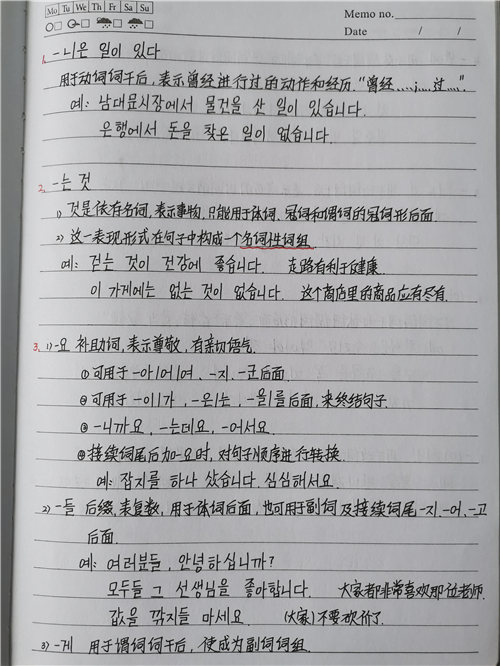 Mo Tu We Th Fr Sa Su
Memo no.
Date / /
1. -ㄴ/은 일이 있다
用于动词词干后，表示曾经进行过的动作和经历. "曾经......过....".
예: 남대문시장에서 물건을 산 일이 있습니다.
은행에서 돈을 찾은 일이 없습니다.
2. -는 것
1) 것是依存名词, 表示事物, 只能用于体词、冠词和谓词的冠词形后面.
2) 这一表现形式在句子中构成一个名词性词组.
예: 걷는 것이 건강에 좋습니다. 走路有利于健康.
이 가게에는 없는 것이 없습니다. 这个商店里的商品应有尽有.
3. 1) -요 补助词, 表示尊敬, 有亲切语气.
①可用于 -아/어/여、-지、-군后面.
②可用于 -이/가, -은/는, -을/를后面, 来终结句子.
③ -니까요, -는데요, -어서요.
④接续词尾后加-요时, 对句子顺序进行转换.
예: 잡지를 하나 샀습니다. 심심해서요.
2) -들 后缀, 表复数, 用于体词后面, 也可用于副词及接续词尾-지、-어、-고
后面.
예: 여러분들, 안녕하십니까?
모두들 그 선생님을 좋아합니다. 大家都非常喜欢那位老师.
값을 깎지들 마세요. (大家)不要砍价了.
3) -게 用于谓词词干后, 使成为副词词组.